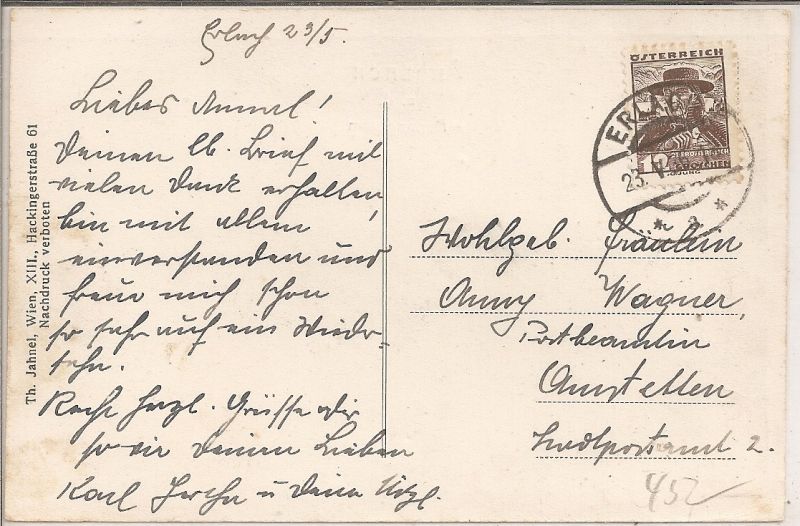 Erlach 23/5.
Liebes Annerl!
Deinen lb. Brief mit
vielen Dank erhalten,
bin mit allem
einverstanden und
freue mich schon
so sehr auf ein Wieder=
sehn.
Recht herzl. Grüsse dir
so wie deinen Lieben
Karl Hertha u Deine
Th. Jahnel, Wien, XIII., Hackingerstraße 61
Nachdruck verboten
ÖSTERREICH
ERLACH
23. V.
* a *
OBERÖSTERREICH
GROSCHEN
Wohlgeb. Fräulein
Anny Wagner,
Postbeamtin
Amstetten
Stadtpostamt 2.
452